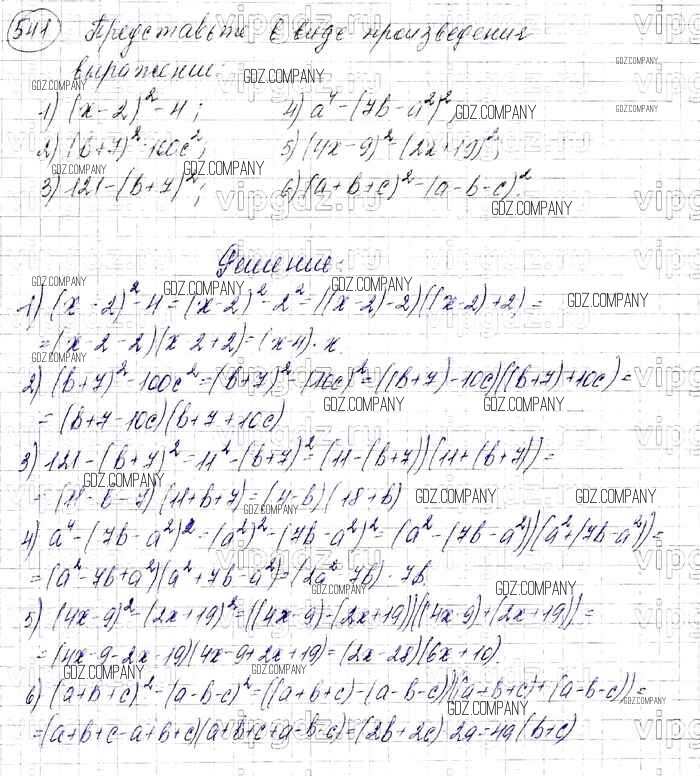 541 Представьте в виде произведения
выражение:
1) (x-2)² - 4; 4) a⁴ - (7b - a²)²;
2) (b+7)² - 100c²; 5) (4x-9)² - (2x+19)²;
3) 121 - (b+7)²; 6) (a+b+c)² - (a-b-c)².
Решение:
1) (x-2)² - 4 = (x-2)² - 2² = ((x-2)-2)((x-2)+2) =
= (x-2-2)(x-2+2) = (x-4)·x
2) (b+7)² - 100c² = (b+7)² - (10c)² = ((b+7)-10c)((b+7)+10c) =
= (b+7-10c)(b+7+10c)
3) 121 - (b+7)² = 11² - (b+7)² = (11-(b+7))(11+(b+7)) =
= (11-b-7)(11+b+7) = (4-b)(18+b)
4) a⁴ - (7b-a²)² = (a²)² - (7b-a²)² = (a²-(7b-a²))(a²+(7b-a²)) =
= (a²-7b+a²)(a²+7b-a²) = (2a²-7b)·7b
5) (4x-9)² - (2x+19)² = ((4x-9)-(2x+19))((4x-9)+(2x+19)) =
= (4x-9-2x-19)(4x-9+2x+19) = (2x-28)(6x+10).
6) (a+b+c)² - (a-b-c)² = ((a+b+c)-(a-b-c))((a+b+c)+(a-b-c)) =
= (a+b+c-a+b+c)(a+b+c+a-b-c) = (2b+2c)·2a = 4a(b+c)